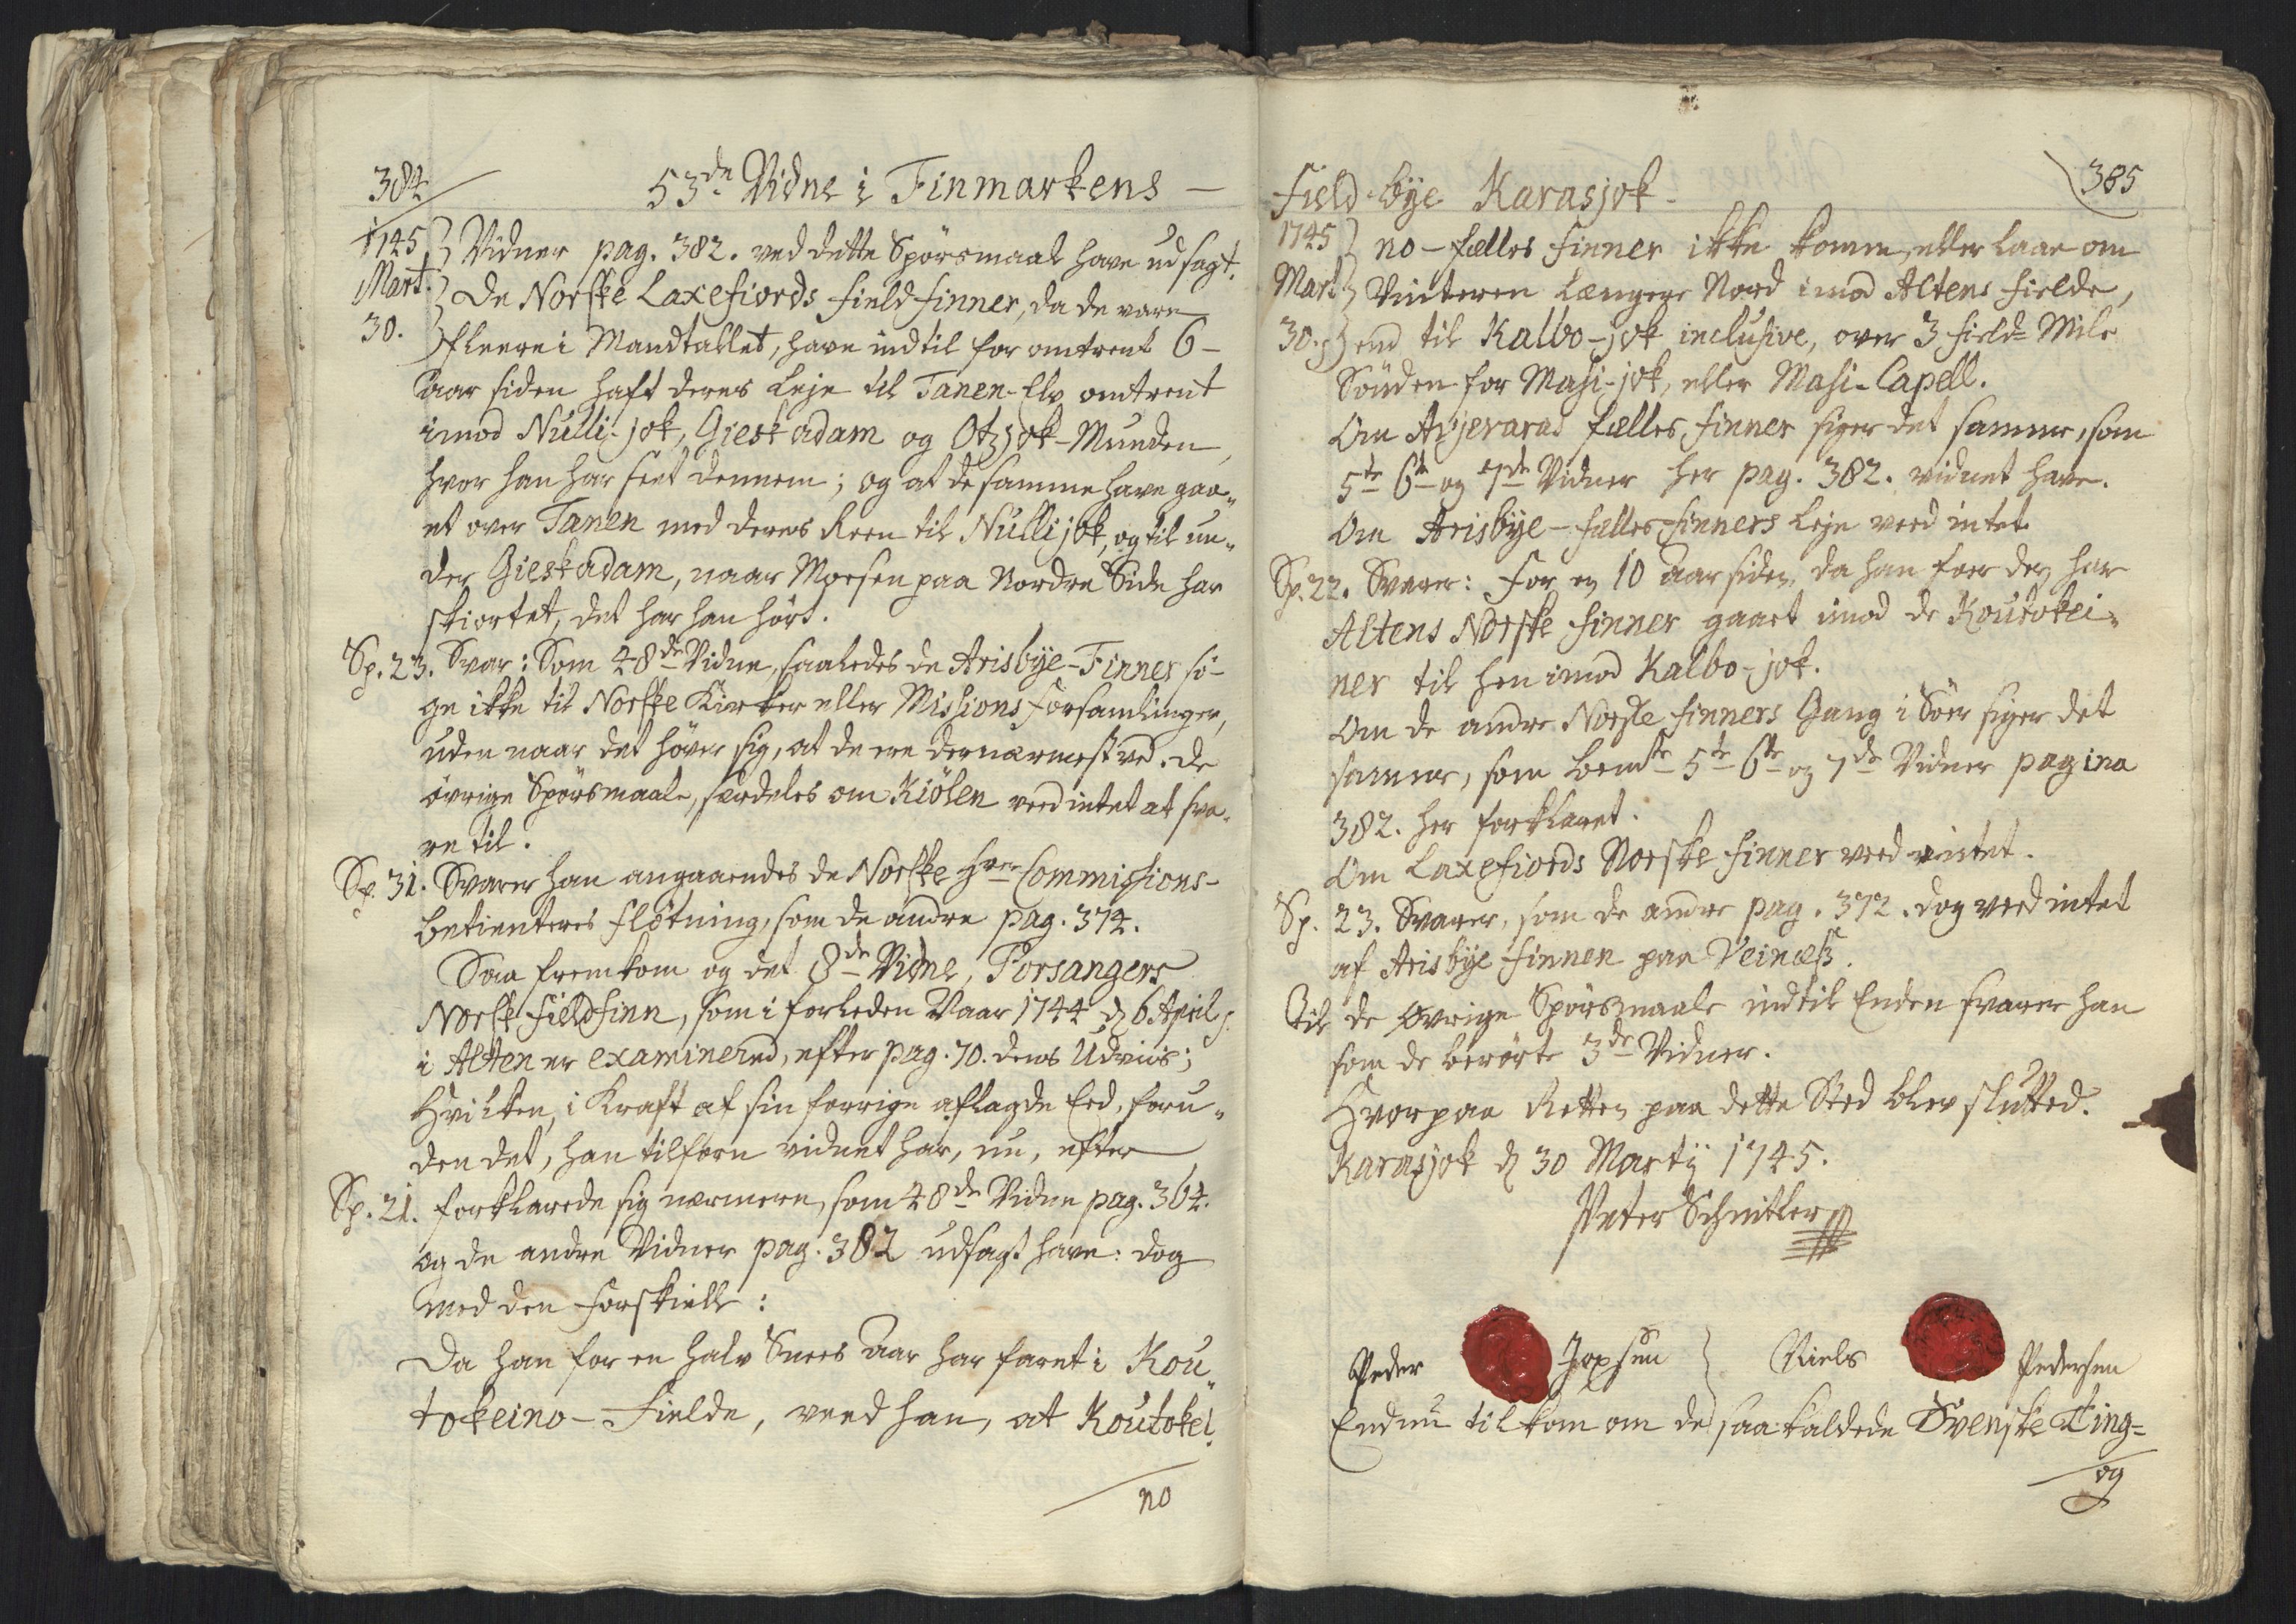 384
53de Vidne i Finmarkens -
1745
Mart.
30.
Vidner pag. 382. ved dette Spörsmaal have udsagt.
De Norske Laxefiords Fieldfinner, da de vare
fleere i Mandtallet, have indtil for omtrent 6 -
aar siden haft deres Leje til Tanen-Elv omtrent
imod Nulli-jok, Gieskadam og Otzjok-Munden,
hvor han har seet dennem; og at de samme have gaa„
et over Tanen med deres Reen til Nullijok, og til un„
der Gieskadam, naar Moesen paa Nordre Side har
skiortet, det har han hört.
Sp. 23. Svar: Som 48de Vidne, saaledes de Arisbÿe-Finner sö-
ge ikke til Norske Kirker eller Missions Forsamlinger,
uden naar det höver sig, at de ere dernærmest ved. De
övrige Spörsmaale, særdeles om Kiölen veed intet at sva„
re til.
Sp. 31. Svarer han angaaendes de Norske Hrr Commissions-
betienteres flötning, som de andre pag. 374.
Saa fremkom og det 8de Vidne, Porsangers
Norsk Fieldfinn, som i forleden Vaar 1744 d 6 April
i Alten er examinered, efter pag. 70. dens Udviis;
Hvilken, i Kraft af sin forrige aflagde Eed, foru„
den det, han tilforn vidnet har, nu, efter
Sp. 21. forklarede sig nærmere, som 48de Vidne pag. 364.
og de andre Vidner pag. 382 udsagt have: dog
med den Forskiell:
Da han for en halv Snees Aar har faret i Kou„
tokeino - Fielde, veed han, at Koutokei„
no
Field-bÿe Karasjok -
385
1745
Mart
30.
no - fælles Finner ikke komme, eller laae om
Vinteren længere Nord imod Altens Fielde,
end til Kalbo-jok inclusive, over 3 Field-Mile
Sönden for Masi-jok, eller Masi-Capell.
Om Avjevaras fælles Finner siger det samme, som
5te 6te og 7de Vidner her pag. 382. vidnet have.
Om Arisbÿe - fælles Finners Leje veed intet.
Sp. 22. Svarer: For en 10 aar siden, da han foer der, har
Altens Norske Finner gaaet imod de Koutokei„
ner til hen imod Kalbo-jok.
Om de andre Norske Finners Gang i Söer siger det
samme, som bemte 5te 6te og 7de Vidner pagina
382. her forklaret.
Om Laxefiords Norske Finner veed intet.
Sp. 23. Svarer, som de andre pag. 372. dog veed intet
af Arisbÿe Finnen paa Veinæss.
Til de övrige Spörsmaale indtil Enden svarer han
som de berörte 3de Vidner.
Hvorpaa Retten paa dette Sted blev slutted.
Karasjok d 30 Martÿ 1745.
Peter Schnitler
Peder Jopsen } Niels Pedersen
Endnu tilkom om de saa kaldede Svenske Ting=
og